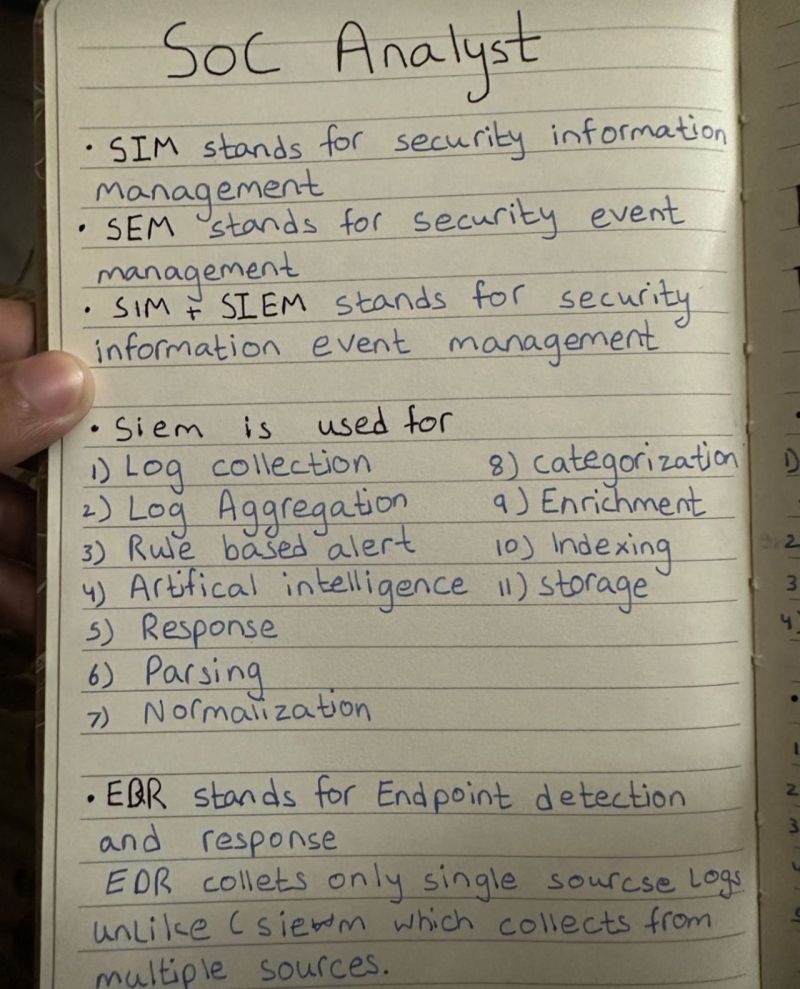 SOC Analyst
• SIM stands for security information
management
• SEM stands for security event
management
• SIM + SIEM stands for security
information event management
• Siem is used for
1) Log collection
2) Log Aggregation
3) Rule based alert
4) Artifical intelligence
5) Response
6) Parsing
7) Normalization
8) categorization
9) Enrichment
10) Indexing
11) storage
• EDR stands for Endpoint detection
and response
EDR collets only single sourcse Logs
unlike (siem which collects from
multiple sources.
1)
2
3
4)
•
1
2
3